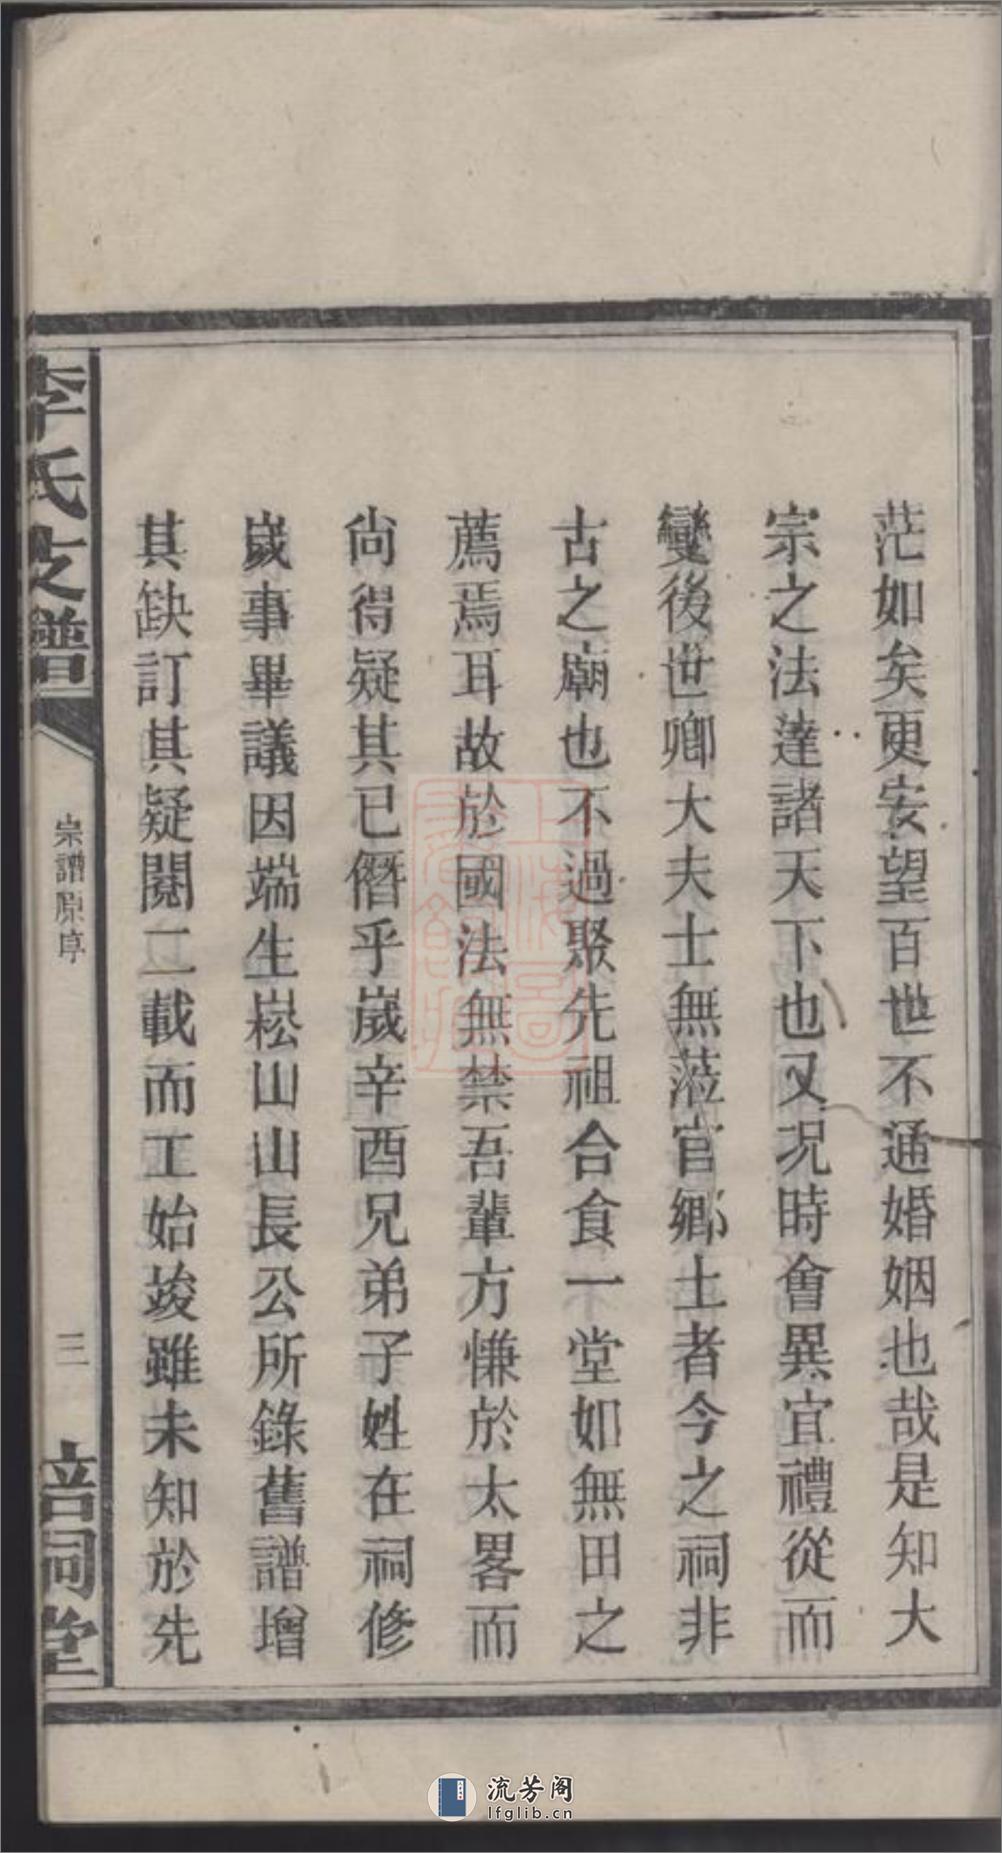 茫如矣更安望百世不通婚姻也哉是知大
宗之法達諸天下也又况時會異宜禮從而
變後世卿大夫士無蒞官鄉土者今之祠非
古之廟也不過聚先祖合食一堂如無田之
薦焉耳故於國法無禁吾輩方慊於太畧而
尙得疑其已僭乎嵗辛酉兄弟子姓在祠修
嵗事畢議因端生崧山山長公所錄舊譜增
其缺訂其疑閱二載而工始竣雖未知於先
李氏支譜
宗譜原序
三
培祠堂
流芳阁
lfglib.cn